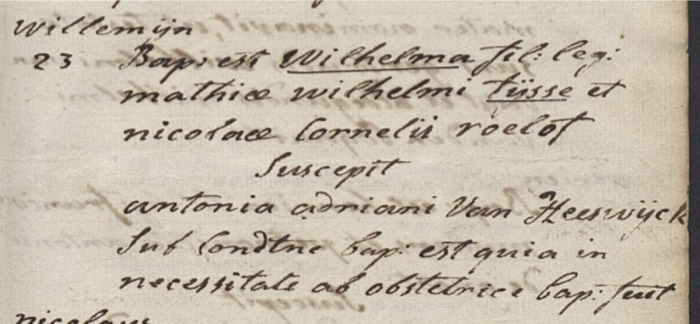 Willemijn
23 Bap: est Wilhelma fil: leg:
mathiæ Wilhelmi tijsse et
nicolaæ Cornelii roelof
Suscepit
antonia adriani Van Heeswijck
Sub Condtne bap: est quia in
necessitate ab obstetrice bap: fuit
nicolaus